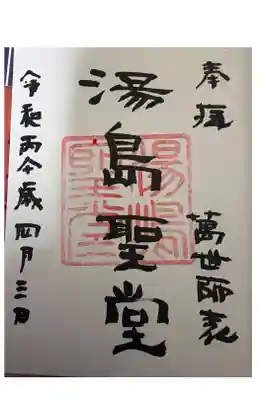 奉拝 萬世師表
湯島聖堂
令和丙午歳四月三日
湯島聖堂